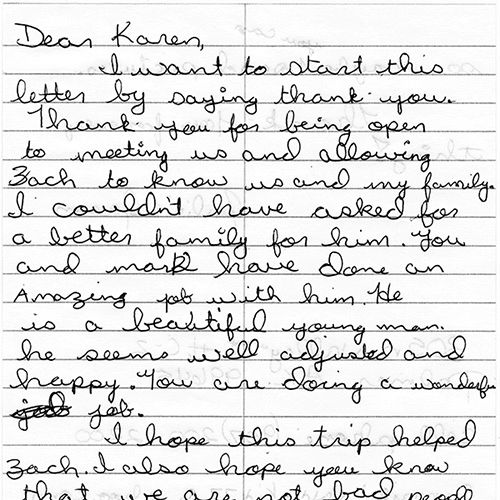 Dear Karen,
I want to start this
letter by saying thank you.
Thank you for being open
to meeting us and allowing
Zach to know us and my family.
I couldn't have asked for
a better family for him. You
and mark have done an
Amazing job with him. He
is a beautiful young man.
he seems well adjusted and
happy. You are doing a wonderful
job.
I hope this trip helped
Zach. I also hope you know
that we are not bad